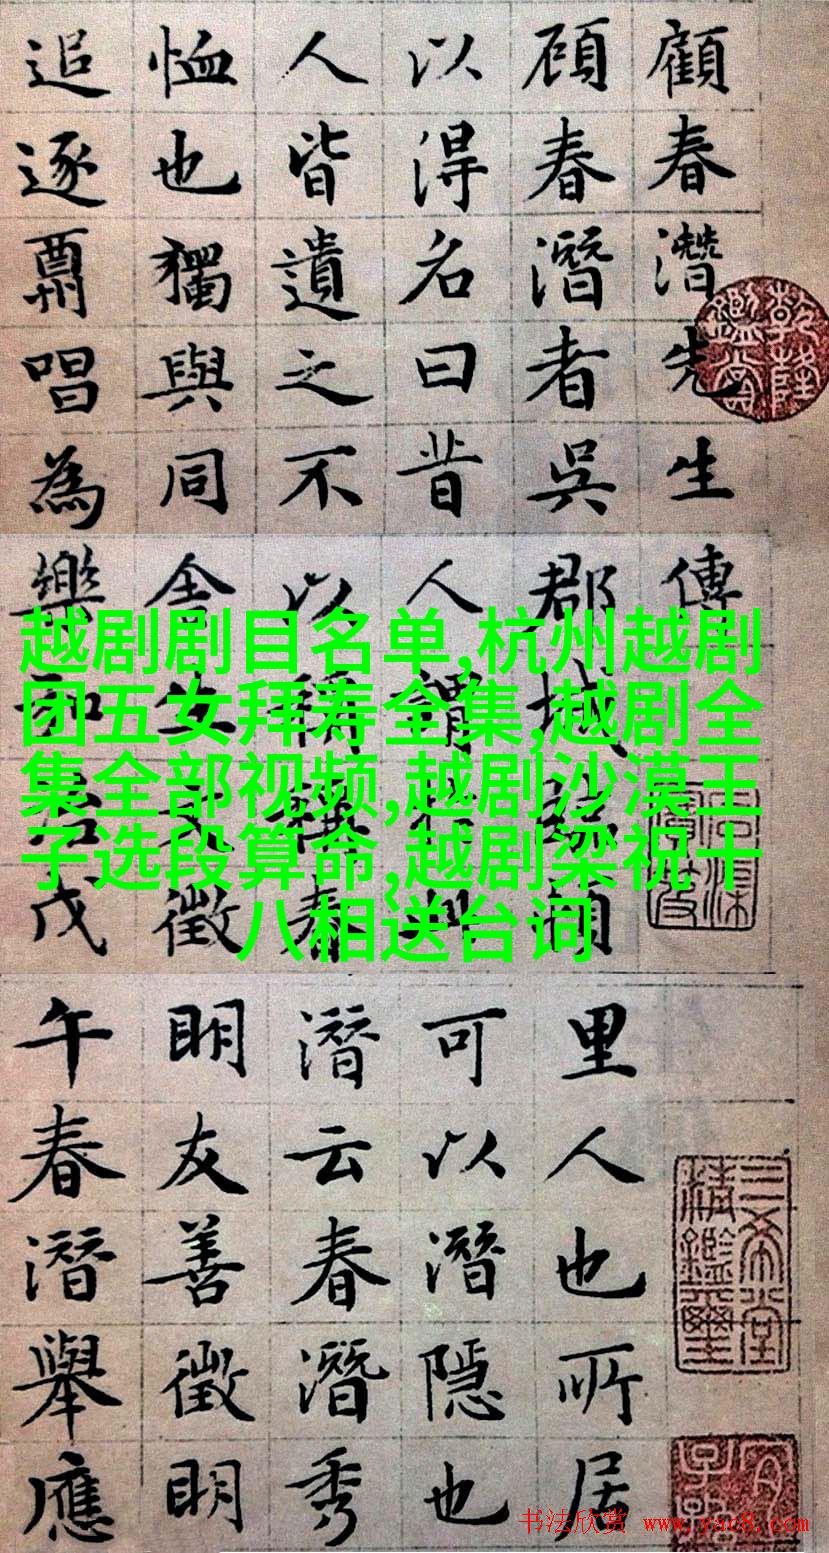 顧春潛先生傳
頋春潛者吳郡城臨頓里人也所居
以得名曰昔人謂可以潛隱也
人皆遺之不以稱春潛云春潛秀
恤也獨與同舍生文徵明友善徵明
追逐唱為樂弘治戊午春潛舉應
乾隆鑑賞
越剧剧目名单,杭州越剧
团五女拜寿全集,越剧全
集全部视频,越剧沙漠王
子选段算命,越剧梁祝十
八相送台词
三希堂精鑑璽
宜子孫
书法欣赏 www.yac8.com